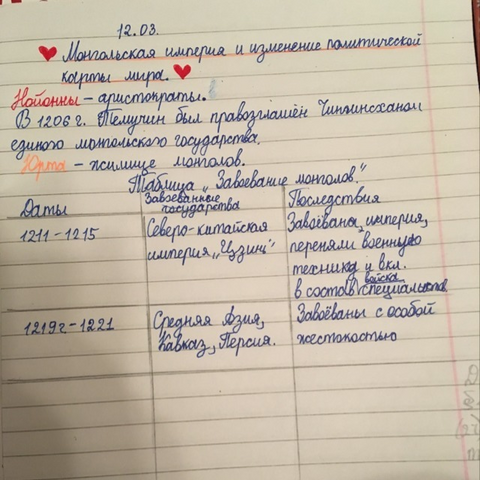 12.03.
Монгольская империя и изменение политической
карты мира.
Нойонны – аристократы.
В 1206 г. Темучин был провозглашён Чингисханом
единого монгольского государства.
Юрта – жилище монголов.
Таблица „Завоевание монголов."
Даты
Завоёванные
государства
Последствия
1211-1215
Северо-китайская
империя „Цзинь"
Завоёвана империя,
переняли военную
технику и вкл.
в состав войска специалистов
1219г-1221
Средняя Азия,
Кавказ, Персия.
Завоёваны с особой
жестокостью